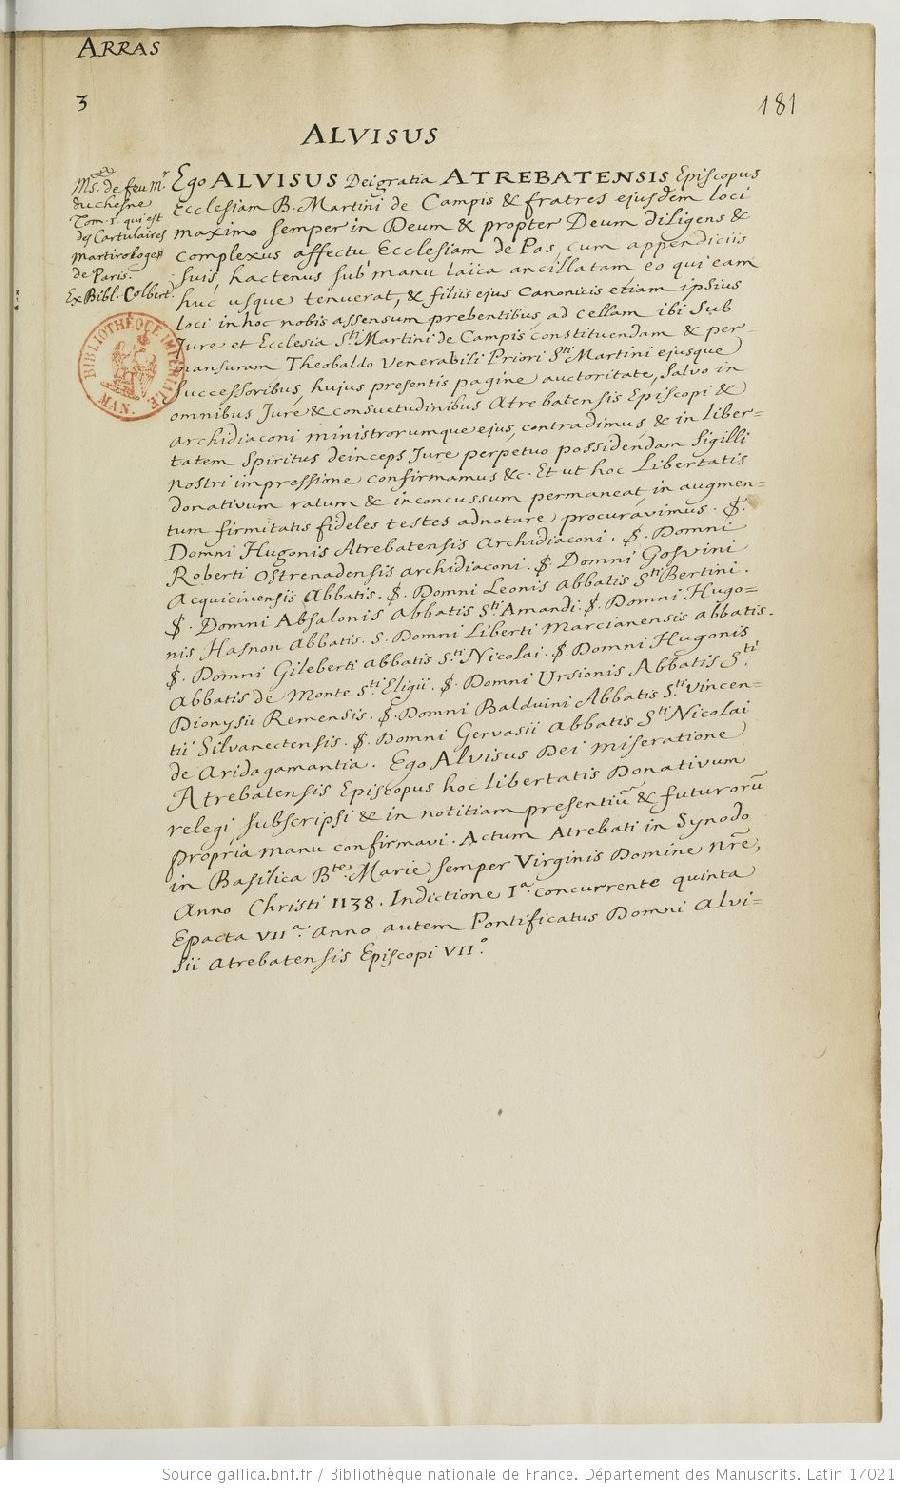 ARRAS
3
181
ALVISUS
Ms. de feu Mr.
duchesne
Tom. 1. qui est
des Cartulaires
Martirologes
de Paris.
Ex Bibl. Colbert.
BIBLIOTHÈQUE IMPÉRIALE
MAN.
Ego ALVISUS Dei gratia ATREBATENSIS Episcopus
Ecclesiam B. Martini de Campis & fratres ejusdem loci
maximo semper in Deum & propter Deum diligens &
complexus affectu Ecclesiam de Pas, cum appendiciis
suis, hactenus sub manu laica ancillatam, eo qui eam
huc usque tenuerat, & filiis ejus canonicis etiam ipsius
loci in hoc nobis assensum prebentibus, ad cellam ibi sub
Jure et Ecclesia Sti Martini de Campis constituendam & per-
mansuram Theobaldo Venerabili Priori Sti Martini ejusque
successoribus, hujus presentis pagine auctoritate, salvo in
omnibus Jure & consuetudinibus Atrebatensis Episcopi &
archidiaconi ministrorumque ejus, contradimus, & in liber=
tatem Spiritus deinceps Jure perpetuo possidendam sigilli
nostri impressime confirmamus &c. Et ut hoc Libertatis
donativum ratum & inconcussum permaneat in augmen=
tum firmitatis fideles testes adnotare procuravimus. S.
Domni Hugonis Atrebatensis archidiaconi. S. Domni
Roberti Ostrenadensis archidiaconi. S. Domni Gosvini
Acquicinensis Abbatis. S. Domni Leonis abbatis Sti Bertini.
S. Domni Absalonis abbatis Sti Amandi. S. Domni Hugo=
nis Hasnon abbatis. S. Domni Liberti Marcianensis abbatis.
S. Domni Gileberti abbatis Sti Nicolai. S. Domni Hugonis
Abbatis de Monte Sti Eligii. S. Domni Ursionis Abbatis Sti
Dionysii Remensis. S. Domni Balduini Abbatis Sti Vincen=
tii Silvanectensis. S. Domni Gervasii abbatis Sti Nicolai
de Aridagamantia. Ego Alvisus Dei miseratione
Atrebatensis Episcopus hoc libertatis Donativum
relegi subscripsi & in notitiam presentiū & futurorū
propria manu confirmavi. Actum Atrebati in Synodo
in Basilica Bte. Marie semper Virginis Domine nrē,
Anno Christi 1138. Indictione Ia. concurrente quinta
Epacta VIIa. anno autem Pontificatus Domni Alvi=
sii Atrebatensis Episcopi VIIo.
Source gallica.bnf.fr / Bibliothèque nationale de France. Département des Manuscrits. Latin 17021